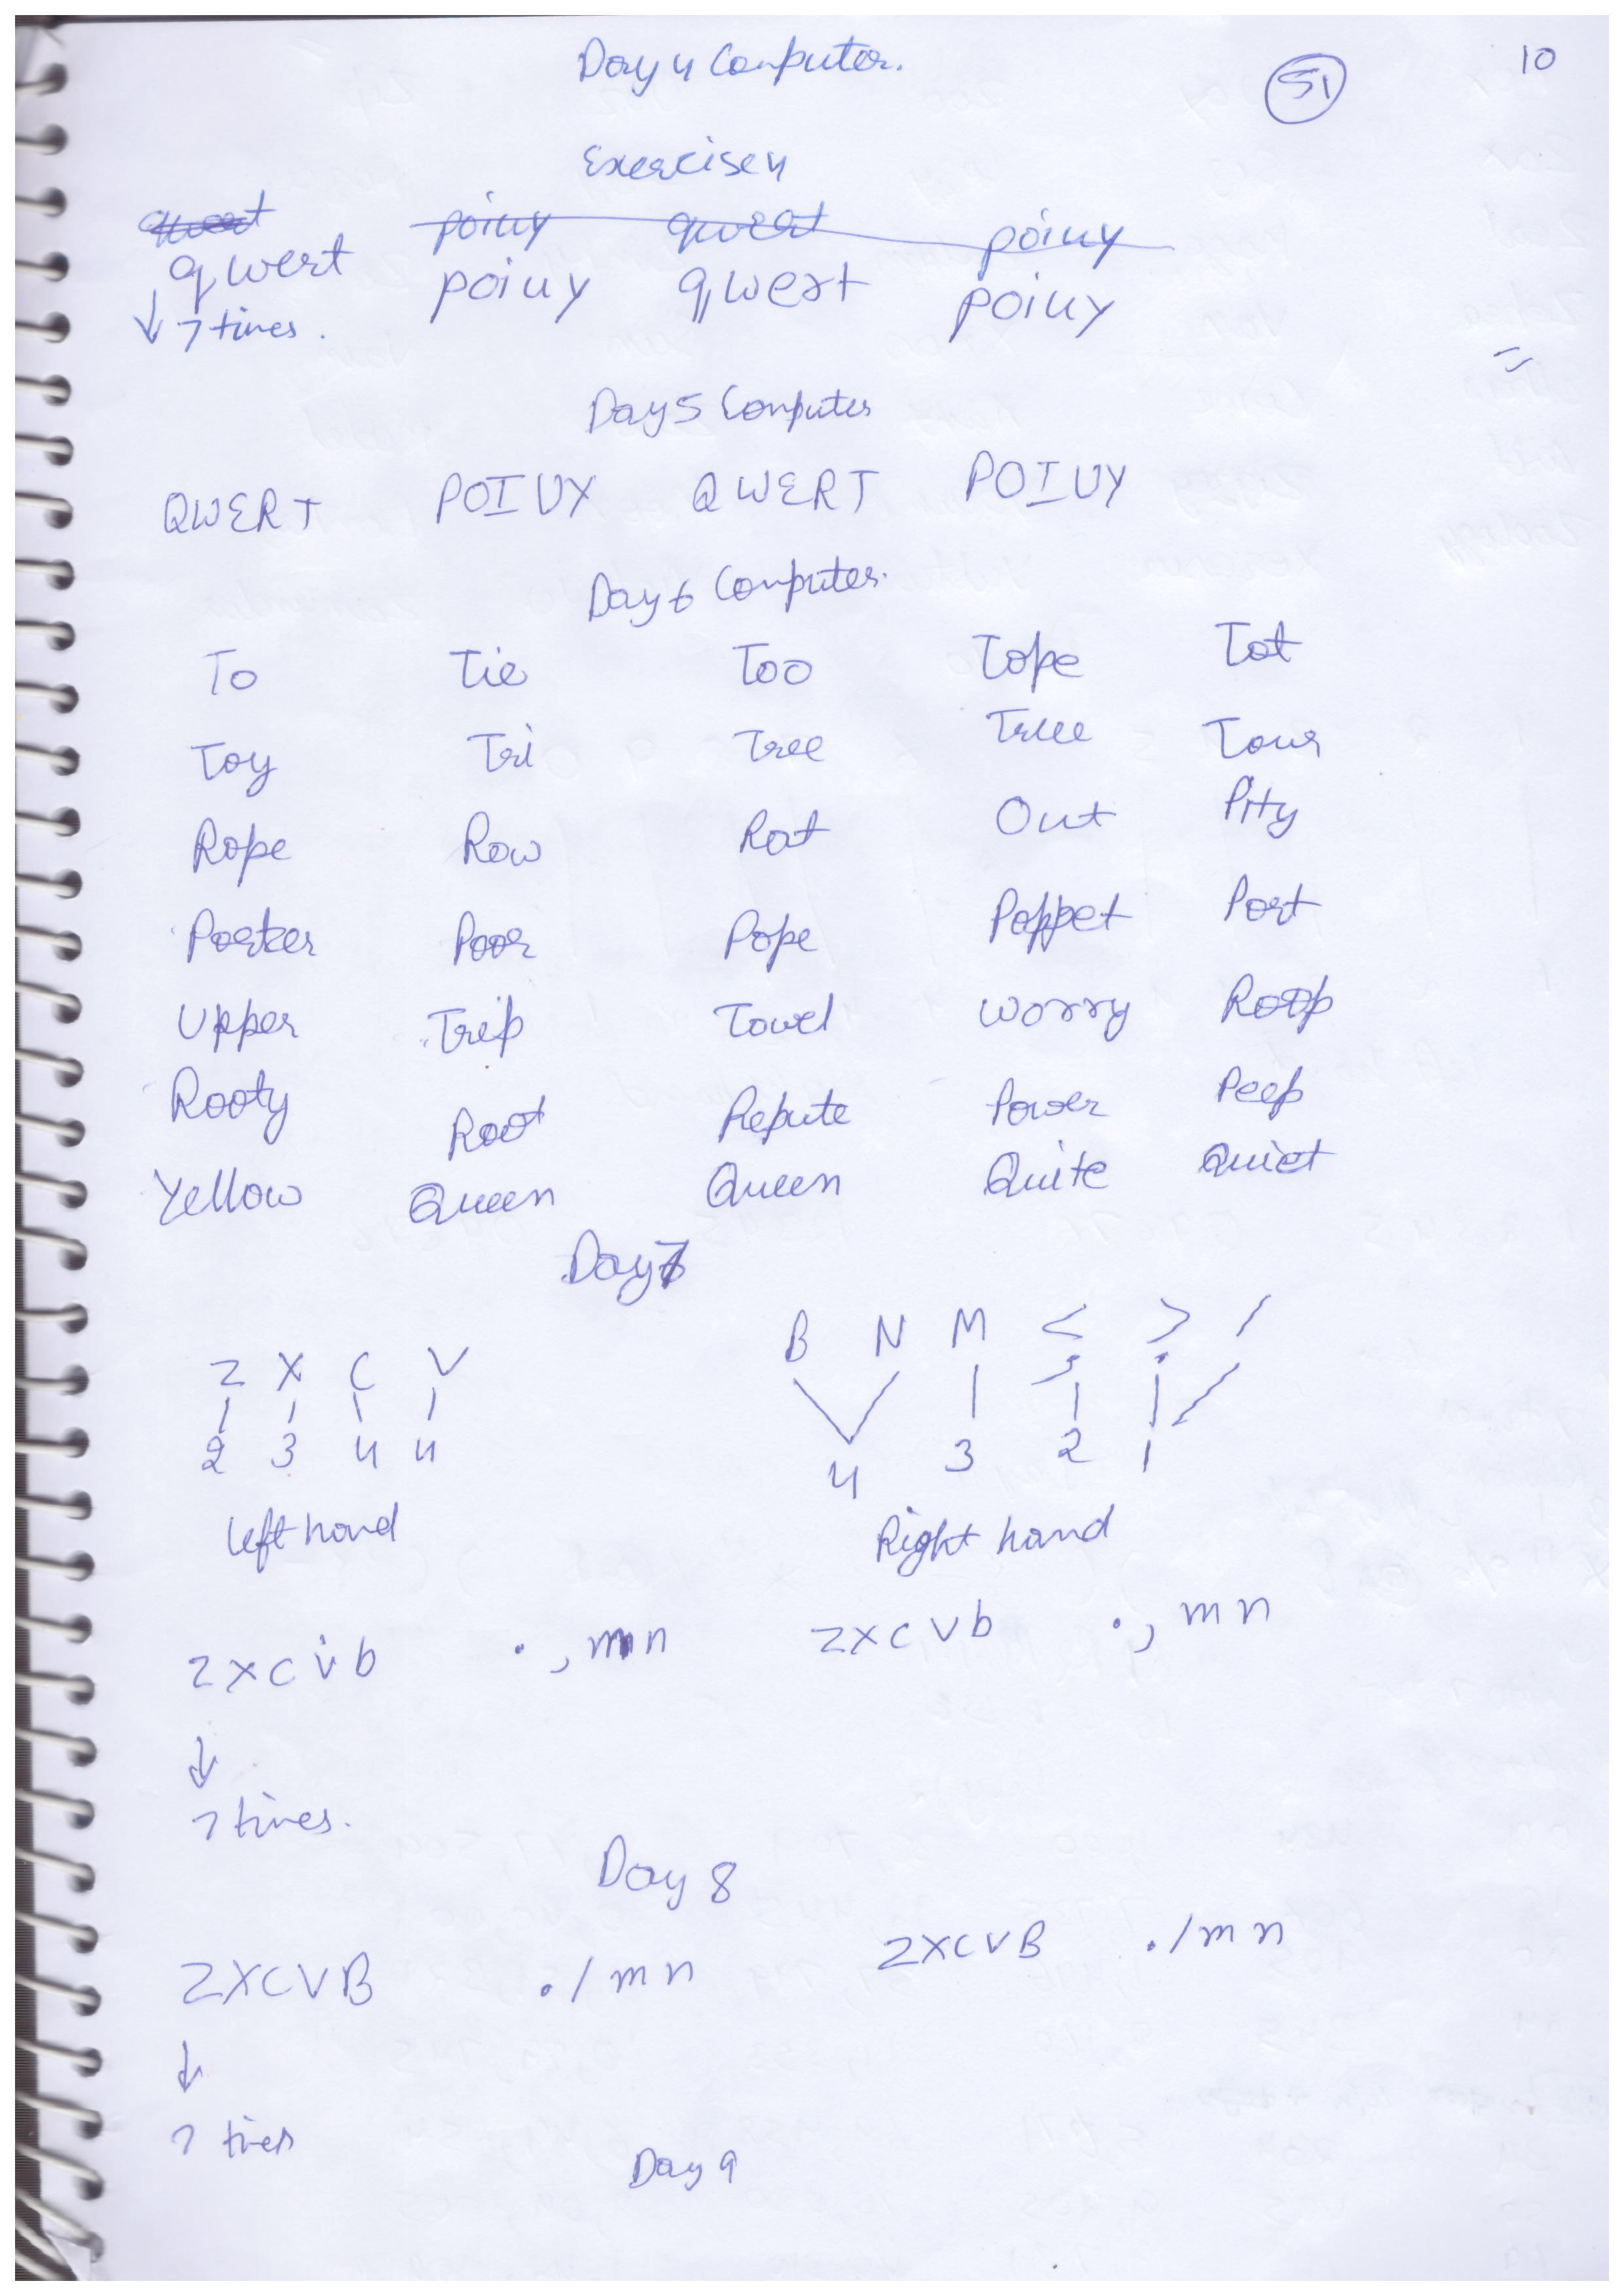 Day 4 Computer.
51
10
Exercise 4
qwert poiuy qwert poiuy
qwert poiuy qwert poiuy
↓ 7 times.
Day 5 Computer
QWERT POIUY QWERT POIUY
Day 6 Computer.
To Tie Too Tope Tot
Toy Tri Tree Truee Tour
Rope Row Rot Out Pity
Porter Poor Pope Poppet Port
Upper Trip Towel Worry Roop
Rooty Root Repute Power Peep
Yellow Queen Queen Quite Quiet
Day 7
B N M < > /
Z X C V , .
2 3 4 4 4 3 2 1
left hand Right hand
zxcvb . , mn zxcvb . , mn
↓
7 times.
Day 8
ZXCVB . / mn ZXCVB . / mn
↓
7 times
Day 9